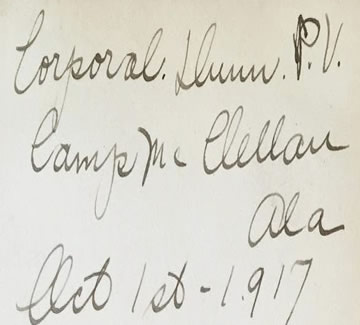 Corporal. Dunn. P.V.
Camp Mc Clellan
Ala
Oct 1st - 1.917